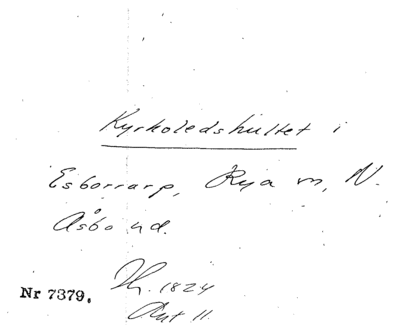 Kyrkoledshultet i
Esborrarp, Rya sn, N.
Åsbo hd.
Th. 1824
Akt 11.
Nr 7379.